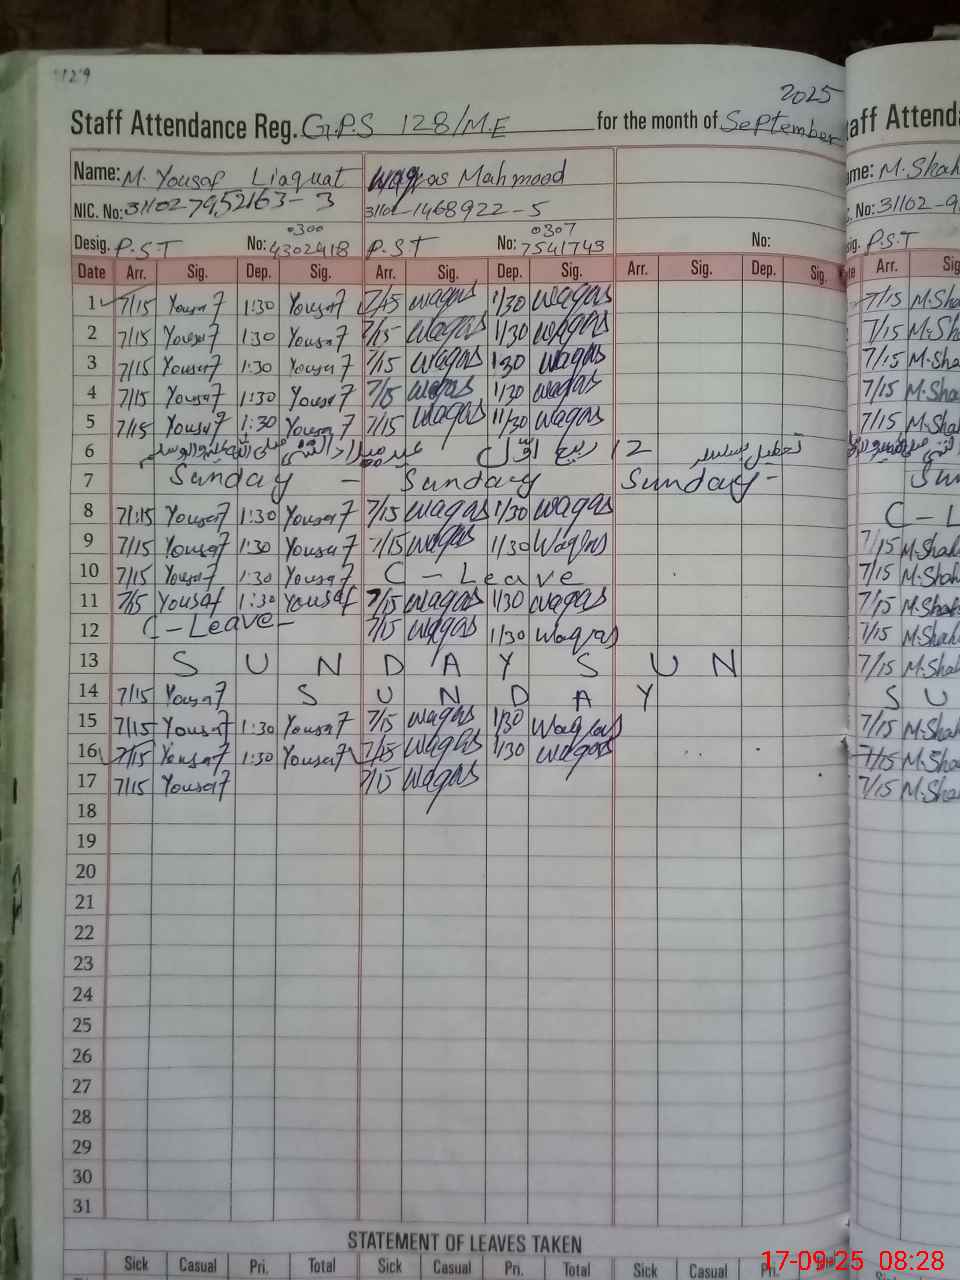 129
2025
Staff Attendance Reg. G.P.S 128/M.E for the month of September
Name: M. Yousaf Liaquat Waqas Mahmood
NIC. No: 31102-7952163-3 31101-1468922-5
0300 0307
Desig. P.S.T No: 4302418 P.S.T No: 7541743 No:
Date Arr. Sig. Dep. Sig. Arr. Sig. Dep. Sig. Arr. Sig. Dep. Sig.
1 7/15 Yousaf 1:30 Yousaf 7/15 waqas 1/30 waqas
2 7/15 Yousaf 1:30 Yousaf 7/15 waqas 1/30 waqas
3 7/15 Yousaf 1:30 Yousaf 7/15 waqas 1:30 waqas
4 7/15 Yousaf 1:30 Yousaf 7/15 waqas 1/30 waqas
5 7/15 Yousaf 1:30 Yousaf 7/15 waqas 11/30 waqas
6 تعطیل بسلسلہ 12 ربیع اوّل عید میلاد النبی صلی اللہ علیہ والہ وسلم
7 Sunday - Sunday Sunday -
8 7/1:15 Yousaf 1:30 Yousaf 7/15 waqas 1/30 waqas
9 7/15 Yousaf 1:30 Yousaf 7/15 waqas 1/30 Waqas
10 7/15 Yousaf 1:30 Yousaf C - Leave
11 7/15 Yousaf 1:30 Yousaf 7/15 waqas 1/30 waqas
12 C - Leave - 7/15 waqas 1/30 waqas
13 S U N D A Y S U N
14 7/15 Yousaf S U N D A Y
15 7/15 Yousaf 1:30 Yousaf 7/15 waqas 1/30 Waqas
16 7/15 Yousaf 1:30 Yousaf 7/15 waqas 1/30 waqas
17 7/15 Yousaf 7/15 waqas
18
19
20
21
22
23
24
25
26
27
28
29
30
31
STATEMENT OF LEAVES TAKEN
Sick Casual Pri. Total Sick Casual Pri. Total Sick Casual Pri.
aff Attend
me: M. Shah
. No: 31102-9
sig. P.S.T
te Arr. Sig
7/15 M. Sha
7/15 M. Sh
7/15 M. Sha
7/15 M. Sha
7/15 M. Shah
Sun
C - L
7/15 M. Shah
7/15 M. Shah
7/15 M. Shah
7/15 M. Shah
7/15 M. Shah
S U
7/15 M. Sha
7/15 M. Sha
7/15 M. Sha
17-09-25 08:28